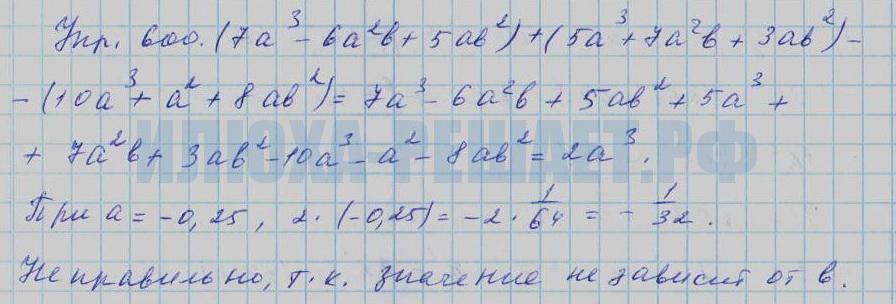 Упр. 600. (7a³ - 6a²b + 5ab²) + (5a³ + 7a²b + 3ab²) -
- (10a³ + a² + 8ab²) = 7a³ - 6a²b + 5ab² + 5a³ +
+ 7a²b + 3ab² - 10a³ - a² - 8ab² = 2a³.
При a = -0,25, 2·(-0,25) = -2·1/64 = -1/32.
Неправильно, т.к. значение не зависит от b.
ИЛЮХА-РЕШАЕТ.РФ